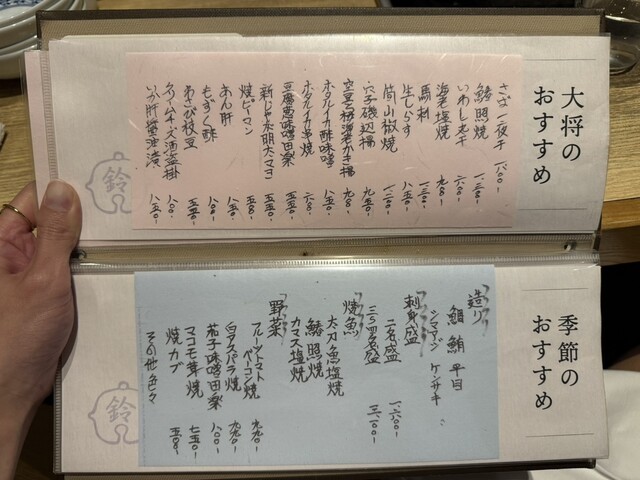 大将の
おすすめ
さば一夜干 一八〇〇-
鰆照焼 一、三〇〇-
いわし丸干 六八〇-
海老塩焼 九八〇-
馬刺 一、三〇〇-
生しらす 八五〇-
筍山椒焼 一、一〇〇-
穴子磯辺揚 九五〇-
空豆と桜海老かき揚 九八〇-
ホタルイカ酢味噌 八五〇-
ホタルイカ串焼 六八〇-
豆腐蕗味噌田楽 五五〇-
新じゃが明太マヨ 五五〇-
焼ピーマン 五八〇-
あん肝 八五〇-
もずく酢 五八〇-
わさび枝豆 五五〇-
クリームチーズ酒盗掛 八〇〇-
いか肝醤油漬 八五〇-
鈴
季節の
おすすめ
造り
鯛 鮪 平目
シマアジ ケンサキ
刺身盛
二名盛 一、六〇〇-
三〜四名盛 三、一〇〇-
焼魚
太刀魚塩焼
鰆照焼
カマス塩焼
野菜
フルーツトマト
ベーコン焼 九九〇-
白アスパラ焼 九九〇-
茄子味噌田楽 八〇〇-
マコモ茸焼 七五〇-
焼カブ 五八〇-
その他色々
鈴